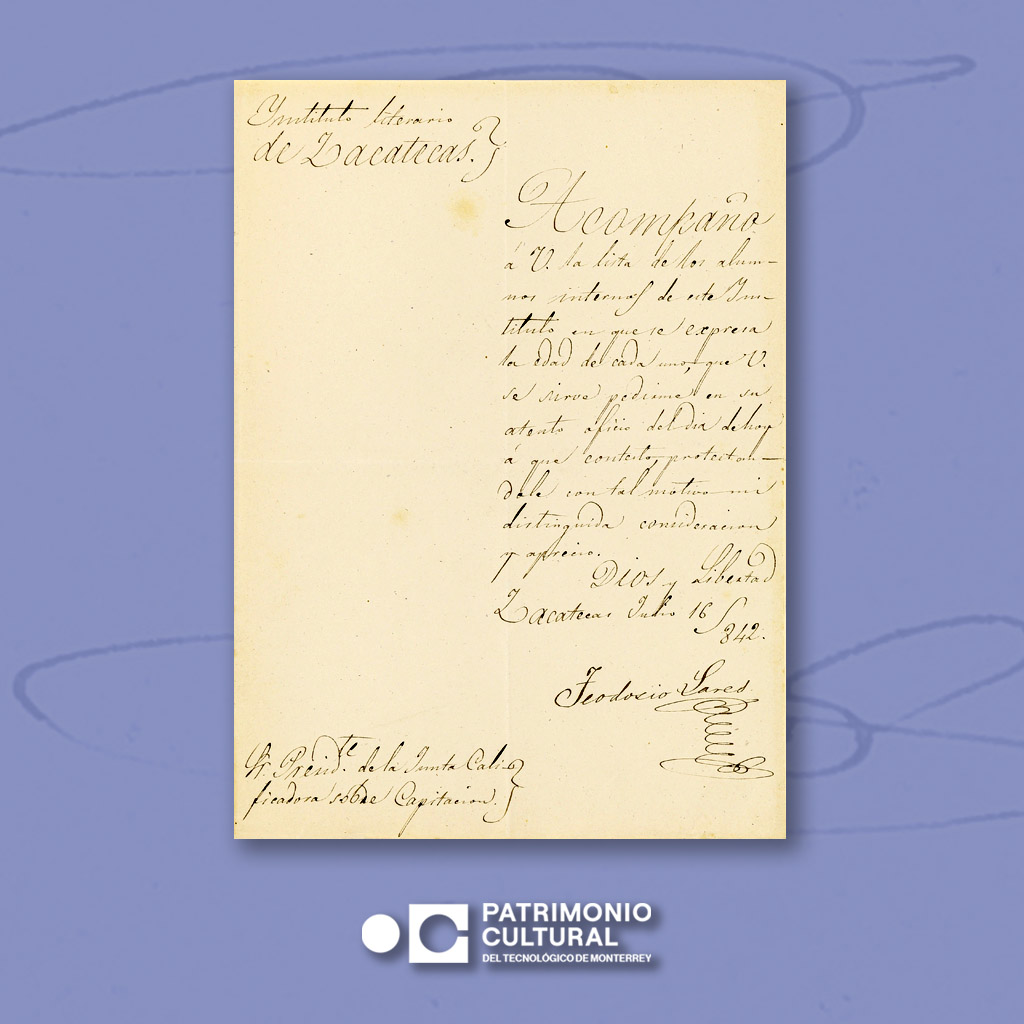 Ynstituto literario
de Zacatecas.
Acompaño
á V. la lista de los alum-
nos internos de este Yns-
tituto en que se expresa
la edad de cada uno, que V.
se sirve pedirme en su
atento oficio del dia de hoy
á que contesto, protestan-
dole con tal motivo mi
distinguida consideracion
y aprecio.
Dios y Libertad
Zacatecas Julio 16
842.
Teodosio Lares
Sr. Presid.te de la Junta Cali
ficadora sobre Capitacion.
PATRIMONIO
CULTURAL
DEL TECNOLÓGICO DE MONTERREY